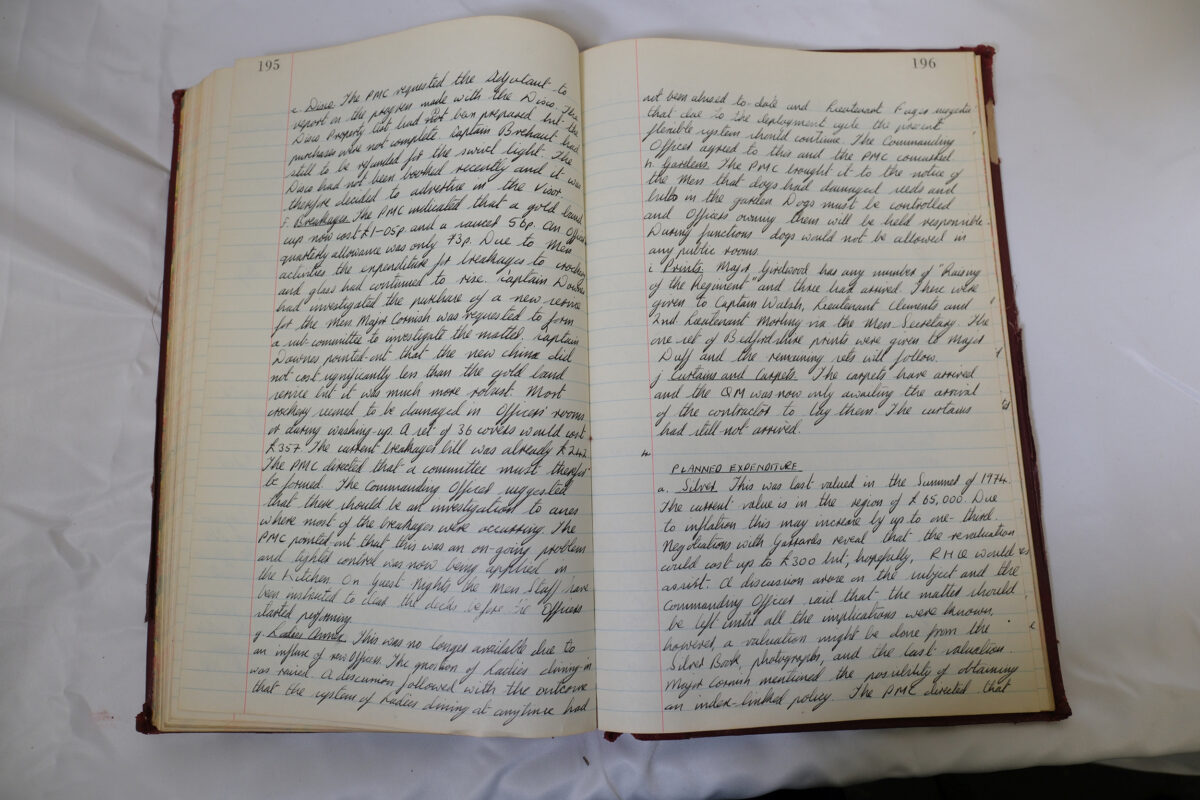 195
e. Disco. The PMC requested the Adjutant to
report on the progress made with the Disco. The
Disco Property list had not been prepared but the
purchases were not complete. Captain Brehaut had
still to be refunded for the swirl light. The
Disco had not been booked recently and it was
therefore decided to advertise in the Visor.
f. Breakages. The PMC indicated that a gold band
cup now cost £1-05p and a saucer 56p. An Officers
quarterly allowance was only 73p. Due to Mess
activities the expenditure for breakages to crockery
and glass had continued to rise. Captain Downes
had investigated the purchase of a new service
for the Mess. Major Cornish was requested to form
a sub-committee to investigate the matter. Captain
Downes pointed out that the new china did
not cost significantly less than the gold band
service but it was much more robust. Most
crockery seemed to be damaged in Officers' rooms
or during washing-up. A set of 36 covers would cost
£357. The current breakages bill was already £242.
The PMC directed that a committee must therefore
be formed. The Commanding Officer suggested
that there should be an investigation to assess
where most of the breakages were occurring. The
PMC pointed out that this was an on-going problem
and tighter control was now being applied in
the Kitchen. On Guest Nights the Mess Staff have
been instructed to clear the decks before the Officers
started
g. Ladies Dinner. This was no longer available due to
an influx of new Officers. The question of Ladies dining-in
was raised. A discussion followed with the outcome
that the system of Ladies dining at anytime had
196
not been abused to-date and Lieutenant suggested
that due to the deployment cycle the present
flexible system should continue. The Commanding
Officer agreed to this and the PMC concurred
h. Gardens. The PMC brought it to the notice of
the Mess that dogs had damaged seeds and
bulbs in the garden. Dogs must be controlled
and Officers owning them will be held responsible.
During functions dogs would not be allowed in
any public rooms.
i. Prints. Major Girdwood has any number of "Raising
of the Regiment" and three had arrived. These were
given to Captain Walsh, Lieutenant Clements and
2nd Lieutenant Morling via the Mess Secretary. The
one set of Bedfordshire prints were given to Major
Duff and the remaining sets will follow.
j. Curtains and Carpets. The carpets have arrived
and the QM was now only awaiting the arrival
of the contractor to lay them. The curtains
had still not arrived.
PLANNED EXPENDITURE
a. Silver. This was last valued in the Summer of 1974.
The current value is in the region of £65,000. Due
to inflation this may increase by up to one-third.
Negotiations with Garrards reveal that the revaluation
could cost up to £300 but, hopefully, RHQ would
assist. A discussion arose on the subject and the
Commanding Officer said that the matter should
be left until all the implications were known,
however, a valuation might be done from the
Silver Book, photographs, and the last valuation.
Major Cornish mentioned the possibility of obtaining
an index-linked policy. The PMC directed that